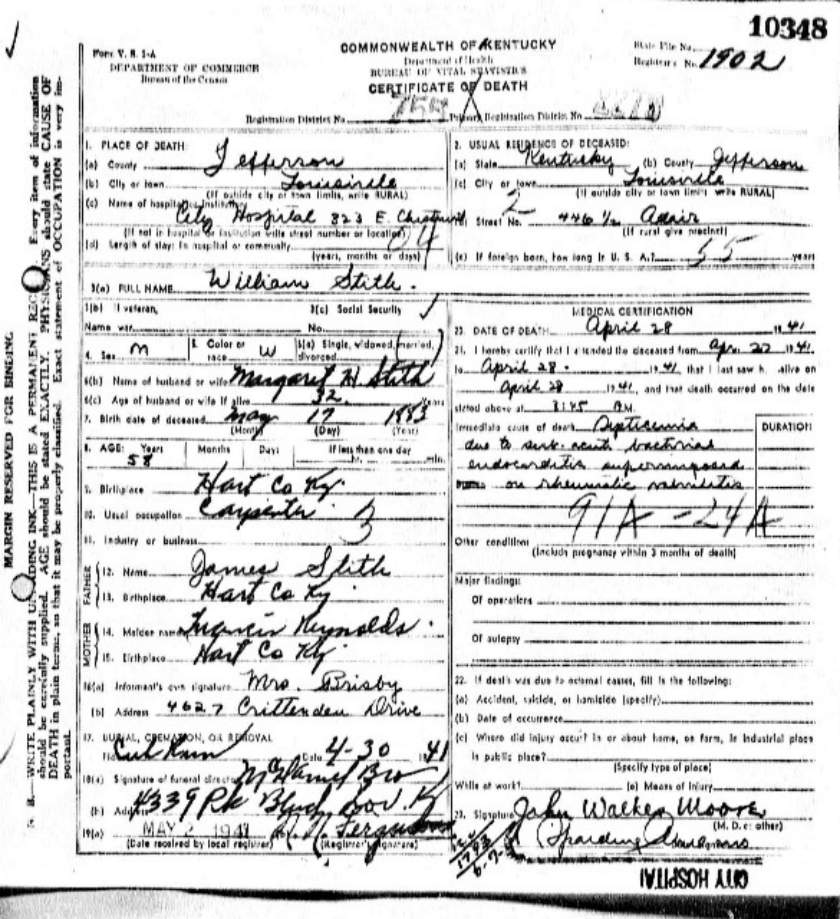 10348
Form V. S. 1-A
DEPARTMENT OF COMMERCE
Bureau of the Census
COMMONWEALTH OF KENTUCKY
Department of Health
BUREAU OF VITAL STATISTICS
CERTIFICATE OF DEATH
State File No.
Registrar's No. 1902
Registration District No. Primary Registration District No.
MARGIN RESERVED FOR BINDING
N. B.—WRITE PLAINLY WITH UNFADING INK—THIS IS A PERMANENT RECORD. Every item of information
should be carefully supplied. AGE should be stated EXACTLY. PHYSICIANS should state CAUSE OF
DEATH in plain terms, so that it may be properly classified. Exact statement of OCCUPATION is very im-
portant.
1. PLACE OF DEATH:
(a) County Jefferson
(b) City or town Louisville
(If outside city or town limits, write RURAL)
(c) Name of hospital or institution:
City Hospital 323 E. Chestnut
(If not in hospital or institution write street number or location)
(d) Length of stay: In hospital or community
(years, months or days)
2. USUAL RESIDENCE OF DECEASED:
(a) State Kentucky (b) County Jefferson
(c) City or town Louisville
(If outside city or town limits, write RURAL)
Street No. 446 1/2 Adair
(If rural give precinct)
(e) If foreign born, how long in U. S. A.? 55 years
3(a) FULL NAME William Stith.
3(b) If veteran, 3(c) Social Security
Name war No.
4. Sex M 5. Color or race W 6(a) Single, widowed, married, divorced
6(b) Name of husband or wife Margaret H Stith
6(c) Age of husband or wife if alive 32 Years
7. Birth date of deceased May 17 1883
(Month) (Day) (Year)
8. AGE: Years Months Days If less than one day
58 hr. min.
9. Birthplace Hart Co Ky.
10. Usual occupation Carpenter
11. Industry or business
FATHER
12. Name James Stith
13. Birthplace Hart Co Ky
MOTHER
14. Maiden name Francis Reynolds.
15. Birthplace Hart Co Ky
16(a) Informant's own signature Mrs. Brisby
(b) Address 4627 Crittenden Drive
17. BURIAL, CREMATION, OR REMOVAL
Date 4-30 1941
18(a) Signature of funeral director
(b) Address 4339 Pk Blvd Lou. Ky
19(a) MAY 2 1941
(Date received by local registrar) (Registrar's signature)
MEDICAL CERTIFICATION
20. DATE OF DEATH April 28 1941
21. I hereby certify that I attended the deceased from Apr. 22 1941
to April 28 1941, that I last saw h alive on
April 28 1941, and that death occurred on the date
stated above at 3:45 M.
Immediate cause of death Septicemia
due to sub-acute bacterial
endocarditis superimposed
on rheumatic valvulitis
DURATION
91A - 24A
Other conditions
(Include pregnancy within 3 months of death)
Major findings:
Of operations
Of autopsy
22. If death was due to external causes, fill in the following:
(a) Accident, suicide, or homicide (specify)
(b) Date of occurrence
(c) Where did injury occur? In or about home, on farm, in industrial place
in public place?
(Specify type of place)
While at work? (e) Means of Injury
23. Signature John Walker Moore
(M. D. or other)
CITY HOSPITAL